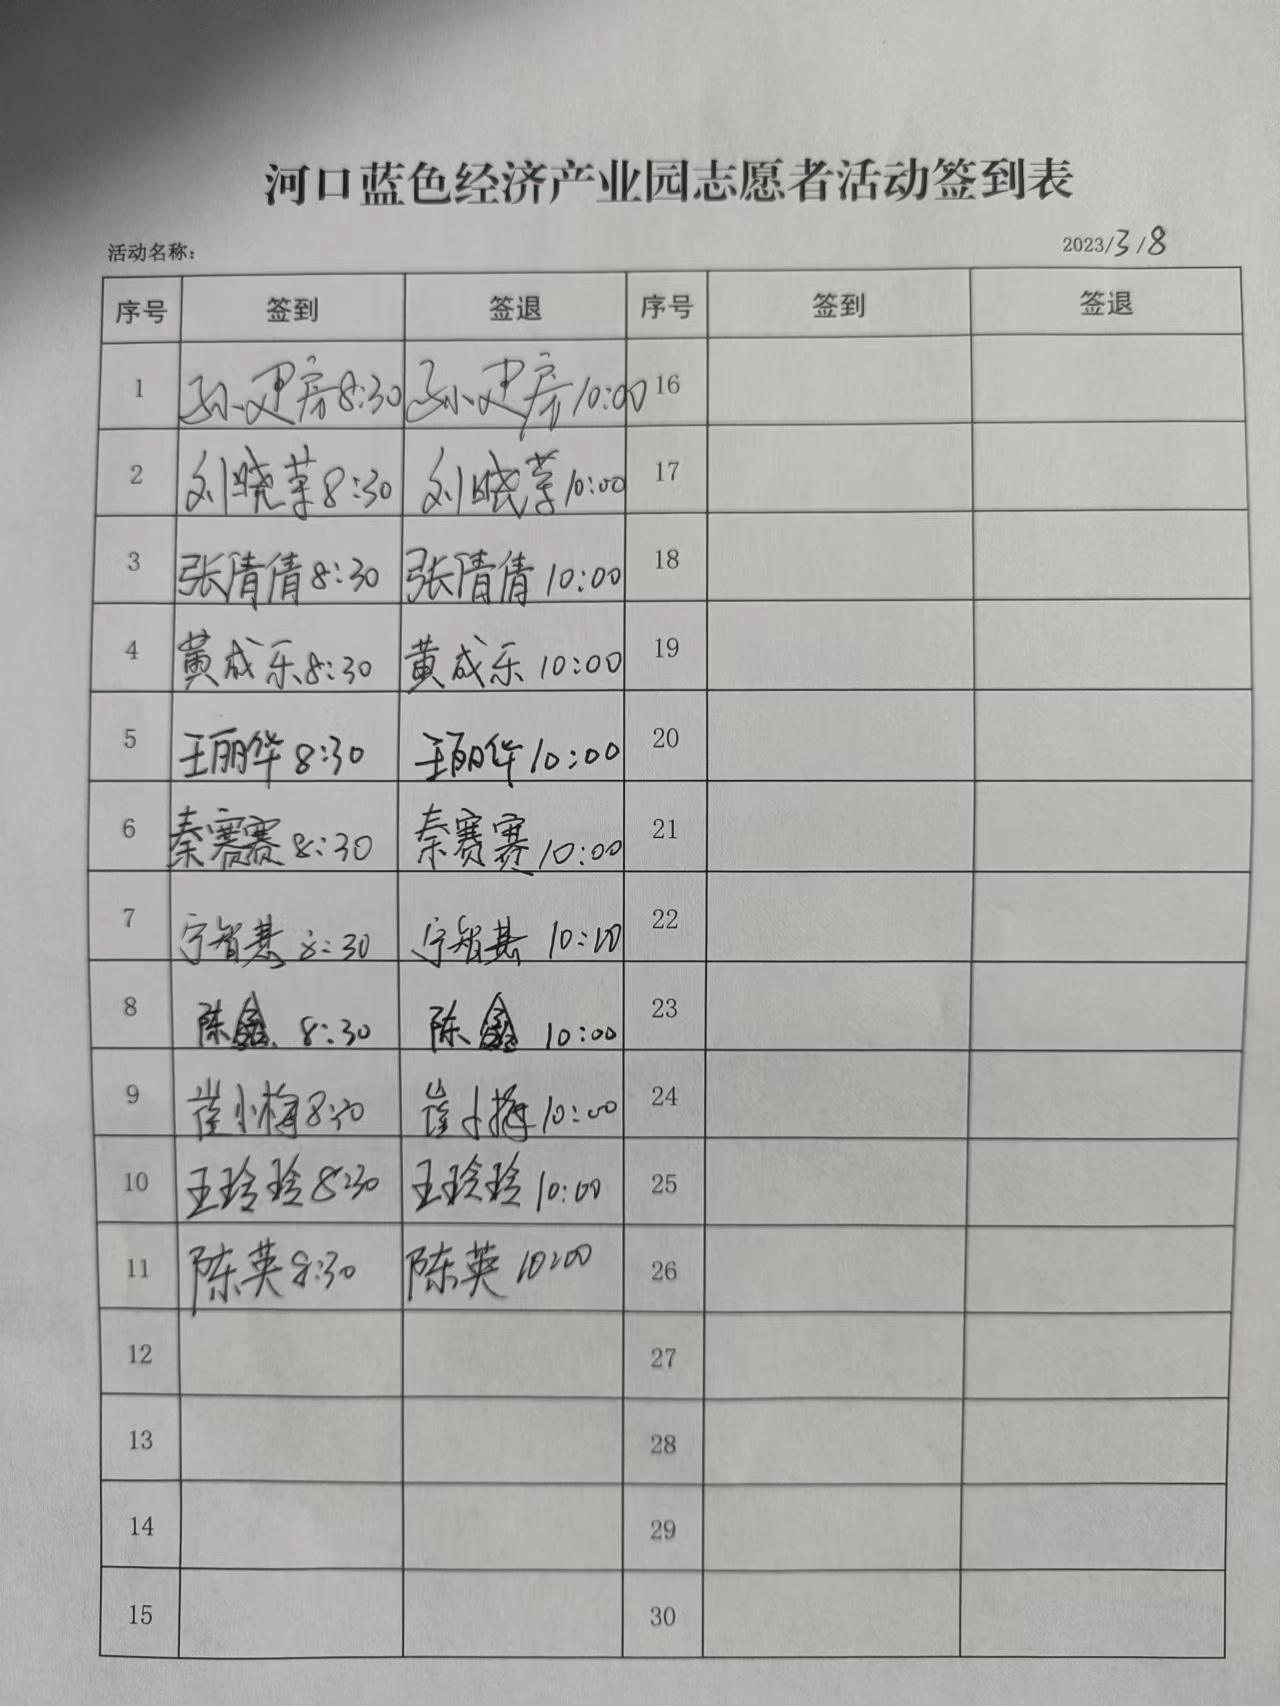 河口蓝色经济产业园志愿者活动签到表
活动名称： 2023/3/8
序号 签到 签退 序号 签到 签退
1 孙建房 8:30 孙建房 10:00 16
2 刘晓苹 8:30 刘晓苹 10:00 17
3 张倩倩 8:30 张倩倩 10:00 18
4 黄成乐 8:30 黄成乐 10:00 19
5 王丽华 8:30 王丽华 10:00 20
6 秦赛赛 8:30 秦赛赛 10:00 21
7 宁智慧 8:30 宁智慧 10:00 22
8 陈鑫 8:30 陈鑫 10:00 23
9 崔小梅 8:30 崔小梅 10:00 24
10 王玲玲 8:30 王玲玲 10:00 25
11 陈英 8:30 陈英 10:00 26
12 27
13 28
14 29
15 30